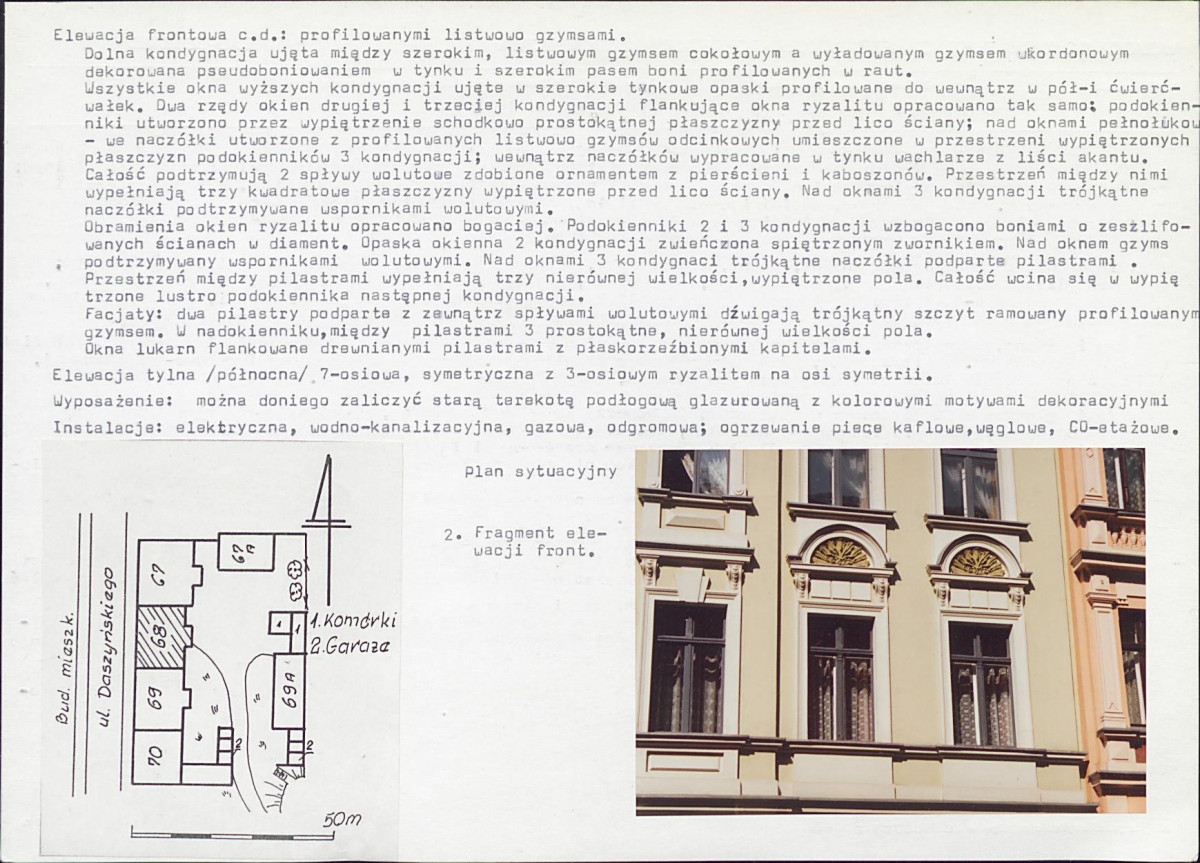 Elewacja frontowa c.d.: profilowanymi listwowo gzymsami.
Dolna kondygnacja ujęta między szerokim, listwowym gzymsem cokołowym a wyładowanym gzymsem wkordonowym
dekorowana pseudoboniowaniem w tynku i szerokim pasem boni profilowanych w raut.
Wszystkie okna wyższych kondygnacji ujęte w szerokie tynkowe opaski profilowane do wewnątrz w pół-i ćwierć-
wałek. Dwa rzędy okien drugiej i trzeciej kondygnacji flankujące okna ryzalitu opracowano tak samo; podokien-
niki utworzono przez wypiętrzenie schodkowo prostokątnej płaszczyzny przed lico ściany; nad oknami pełnołukow
- we naczółki utworzone z profilowanych listwowo gzymsów odcinkowych umieszczone w przestrzeni wypiętrzonych
płaszczyzn podokienników 3 kondygnacji; wewnątrz naczółków wypracowane w tynku wachlarze z liści akantu.
Całość podtrzymują 2 spływy wolutowe zdobione ornamentem z pierścieni i kaboszonów. Przestrzeń między nimi
wypełniają trzy kwadratowe płaszczyzny wypiętrzone przed lico ściany. Nad oknami 3 kondygnacji trójkątne
naczółki podtrzymywane wspornikami wolutowymi.
Obramienia okien ryzalitu opracowano bogaciej. Podokienniki 2 i 3 kondygnacji wzbogacono boniami o zeszlifo-
wanych ścianach w diament. Opaska okienna 2 kondygnacji zwieńczona spiętrzonym zwornikiem. Nad oknem gzyms
podtrzymywany wspornikami wolutowymi. Nad oknami 3 kondygnaci trójkątne naczółki podparte pilastrami .
Przestrzeń między pilastrami wypełniają trzy nierównej wielkości,wypiętrzone pola. Całość wcina się w wypię
trzone lustro podokiennika następnej kondygnacji.
Facjaty: dwa pilastry podparte z zewnątrz spływami wolutowymi dźwigają trójkątny szczyt ramowany profilowanym
gzymsem. W nadokienniku,między pilastrami 3 prostokątne, nierównej wielkości pola.
Okna lukarn flankowane drewnianymi pilastrami z płaskorzeźbionymi kapitelami.
Elewacja tylna /północna/ 7-osiowa, symetryczna z 3-osiowym ryzalitem na osi symetrii.
Wyposażenie: można doniego zaliczyć starą terekotę podłogową glazurowaną z kolorowymi motywami dekoracyjnymi
Instalacje: elektryczna, wodno-kanalizacyjna, gazowa, odgromowa; ogrzewanie piece kaflowe,węglowe, CO-etażowe.
plan sytuacyjny
2. Fragment ele-
wacji front.
Bud. mieszk.
ul. Daszyńskiego
67
67A
68
69
70
69A
1
1
2
2
1.Komórki
2.Garaże
50m